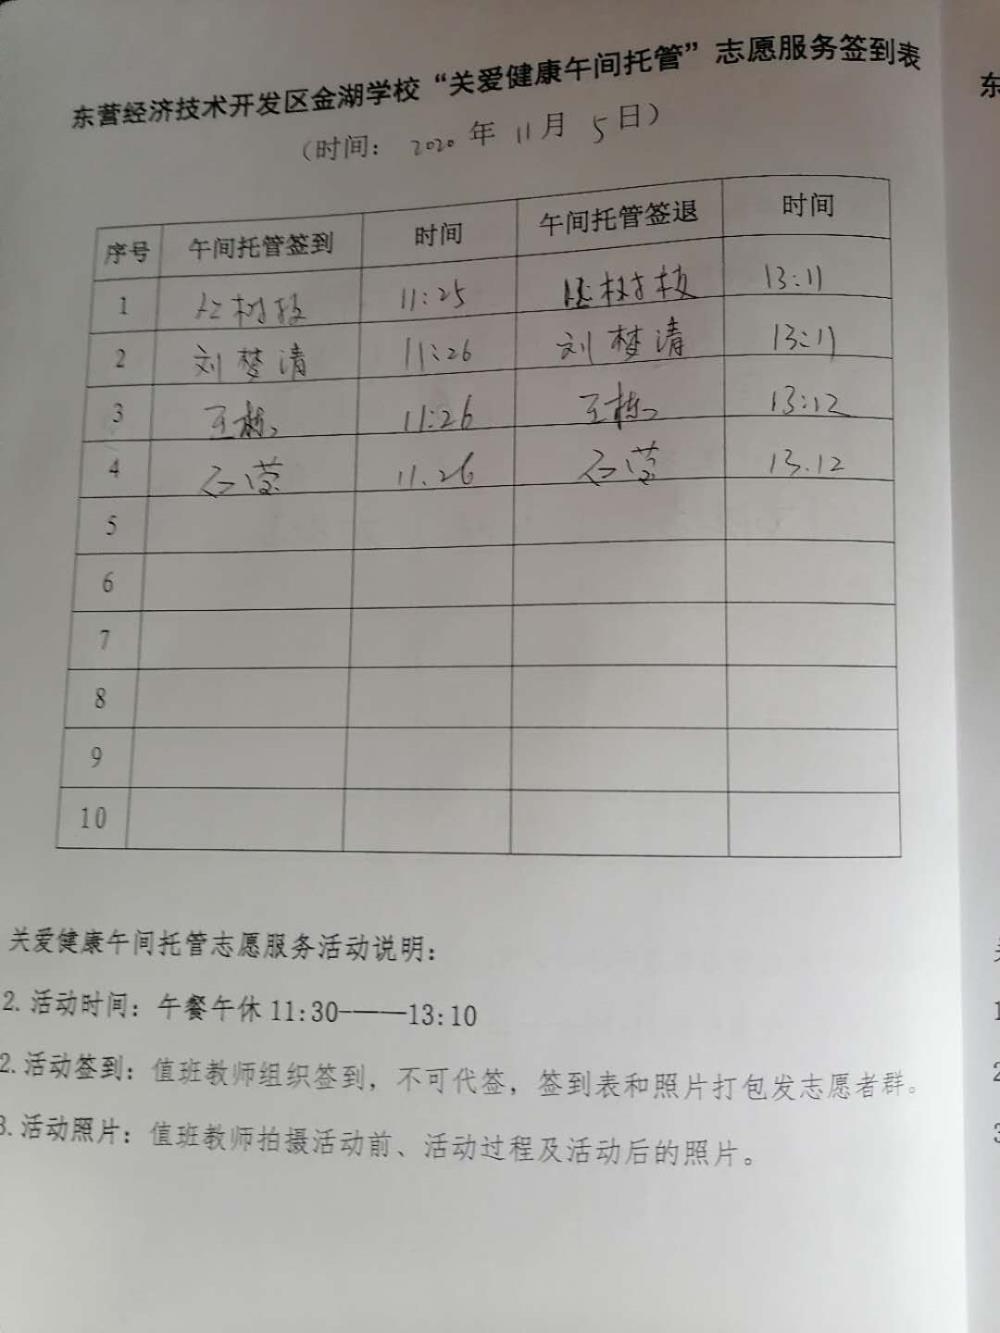 东营经济技术开发区金湖学校“关爱健康午间托管”志愿服务签到表
（时间：2020年11月5日）
序号 午间托管签到 时间 午间托管签退 时间
1 11:25 13:11
2 刘梦清 11:26 刘梦清 13:11
3 王栋 11:26 王栋 13:12
4 石莹 11.26 石莹 13.12
5
6
7
8
9
10
关爱健康午间托管志愿服务活动说明：
2.活动时间：午餐午休11:30——13:10
2.活动签到：值班教师组织签到，不可代签，签到表和照片打包发志愿者群。
3.活动照片：值班教师拍摄活动前、活动过程及活动后的照片。
东
1
2
3